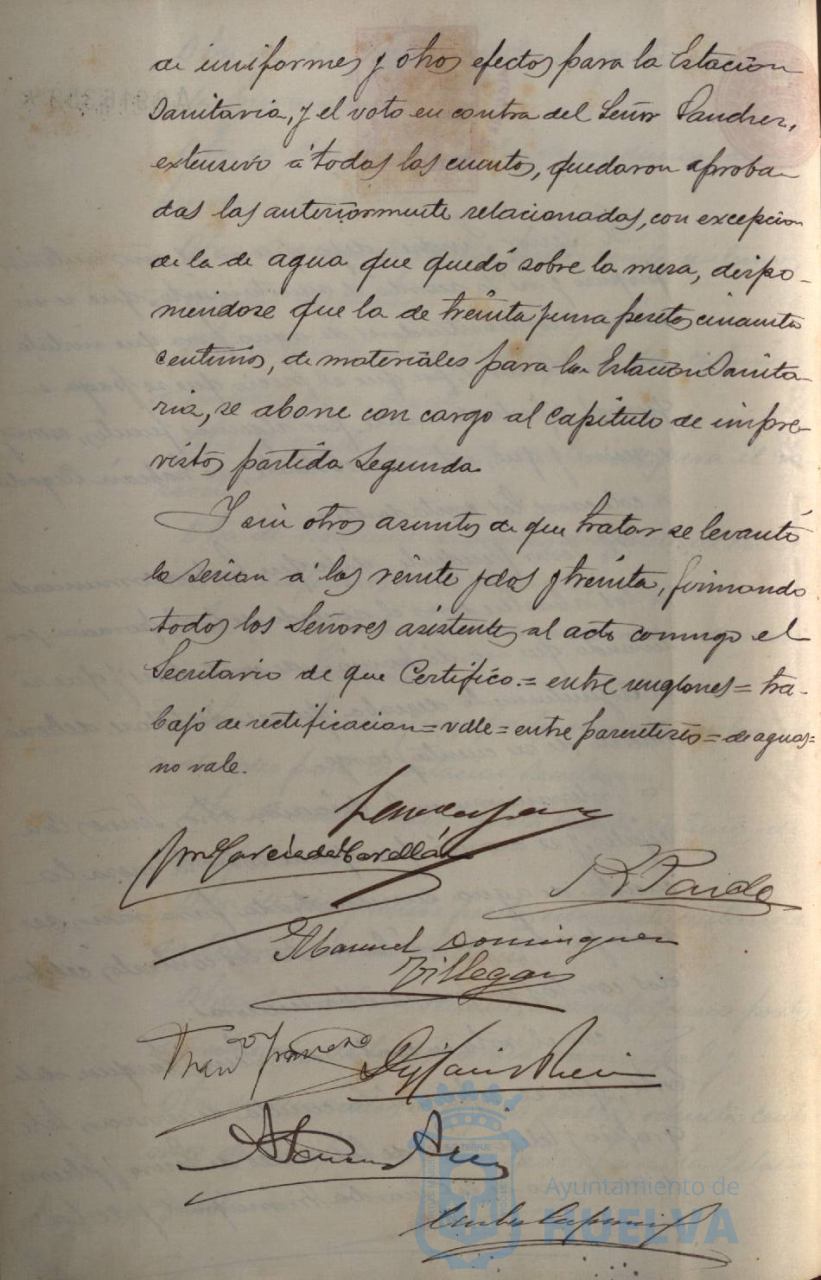 de uniformes y otros efectos para la Estación
Sanitaria, y el voto en contra del Señor Sanchez,
extensivo á todas las cuentas, quedaron aproba-
das las anteriormente relacionadas, con excepcion
de la de agua que quedó sobre la mesa, dispo-
niendose que la de treinta y una pesetas cincuenta
centimos, de materiales para la Estación Sanita-
ria, se abone con cargo al Capítulo de impre-
vistos partida Segunda.
Y sin otros asuntos de que tratar se levantó
la sesion á las veinte y dos y treinta, firmando
todos los Señores asistentes al acto conmigo el
Secretario de que Certifico.= entre renglones = tra-
bajo de rectificacion = vale = entre parentesis = de aguas =
no vale.
Garcia
Pardo
Manuel Dominguez
Villegas
Ayuntamiento de
HUELVA